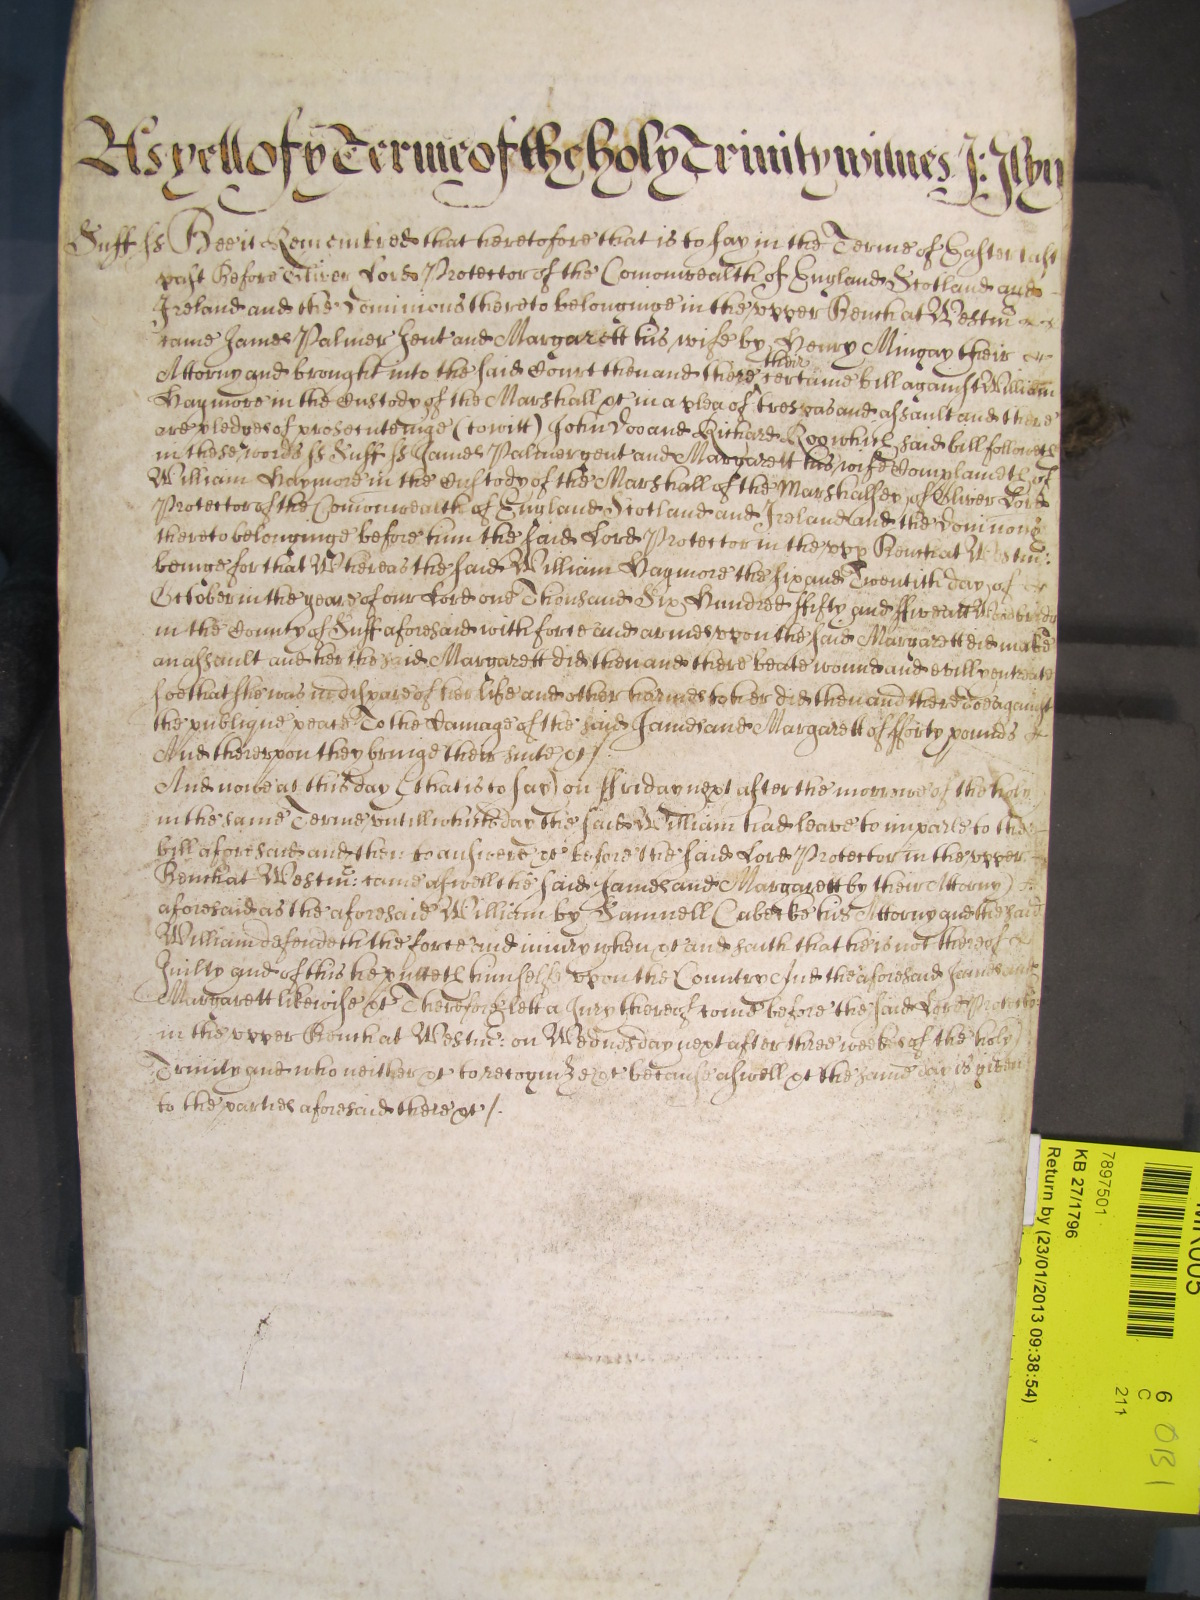 As yett of ye Terme of the holy Trinity witnes J: 
Suff ss Bee it Remembred that heretofore that is to say in the Terme of Easter last
past Before Oliver Lord Protector of the Comonwealth of England Scotland and
Ireland and the Dominions thereto belonginge in the upper Bench at Westm
came James Palmer gent and Margarett his wife by Henry Mingay their
Attorny and brought into the said Court then and there their certaine bill against William
Haymore in the Custody of the Marshall &c in a plea of trespas and assault and there
are pledges of prosecutinge (to witt) John Doo and Richard Roo which said bill followeth
in these words ss Suff ss James Palmer gent and Margarett his wife Complaineth of
William Haymore in the Custody of the Marshall of the Marshalsey of Oliver Lord
Protector of the Comonwealth of England Scotland and Ireland and the Dominons
thereto belonginge before him the said Lord Protector in the upp Bench at Westm:
beinge for that Whereas the said William Haymore the six and Twentith day of
October in the yeare of our Lord one Thousand Six Hundred ffifty and ffive att
in the County of Suff aforesaid with force and armes upon the said Margarett did make
an assault and her the said Margarett did then and there beate wound and evilly entreate
soe that she was in dispare of her life and other harmes to her did then and there doe against
the publique peace To the damage of the said James and Margarett of fforty pounds
And thereupon they bringe their suite &c /.
And nowe at this day (that is to say) on ffriday next after the morrowe of the holy
in the same Terme untill which day the said William had leave to imparle to the
bill aforesaid and then to answere &c before the said Lord Protector in the upper
Bench at Westm: came aswell the said James and Margarett by their Attorny
aforesaid as the aforesaid William by Samuell his Attorny and the said
William defendeth the force and iniury when &c and saith that he is not thereof
Guilty and of this he putteth himself upon the Country And the aforesaid James and
Margarett likewise &c Therefore lett a Jury thereof come before the said Lord Protector
in the upper Bench at Westm: on Wednesday next after three weeks of the holy
Trinity and who neither &c to recognize &c because aswell &c the same day is given
to the parties aforesaid there &c /.
7897501
KB 27/1796
Return by (23/01/2013 09:38:54)
6
C
211